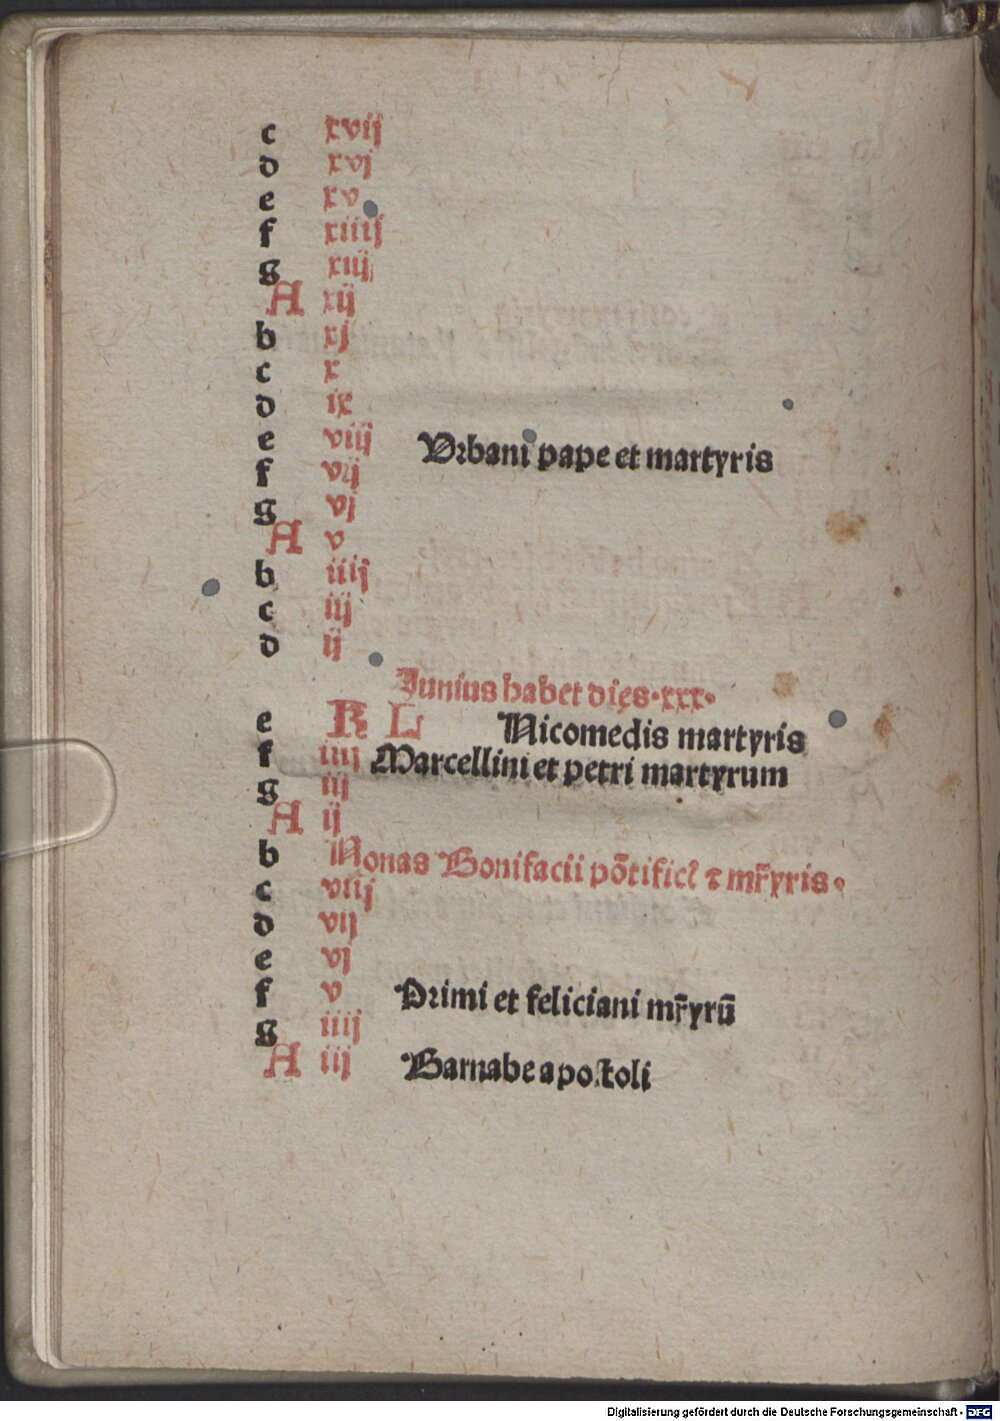 c xvij
d xvj
e xv
f xiiij
g xiij
A xij
b xj
c x
d ix
e viij Urbani pape et martyris
f vij
g vj
A v
b iiij
c iij
d ij
Junius habet dies·xxx·
e K L Nicomedis martyris
f iiij Marcellini et petri martyrum
g iij
A ij
b Nonas Bonifacii põtificꝭ ⁊ mr̃yris·
c viij
d vij
e vj
f v Primi et feliciani mr̃yrũ
g iiij
A iij Barnabe apostoli
Digitalisierung gefördert durch die Deutsche Forschungsgemeinschaft - DFG